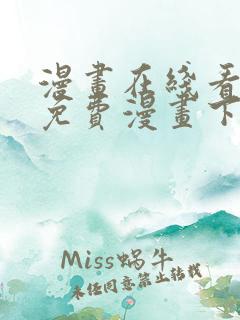 漫畫在綫看
免費漫畫下
Miss蜗牛
未任同意禁止转载